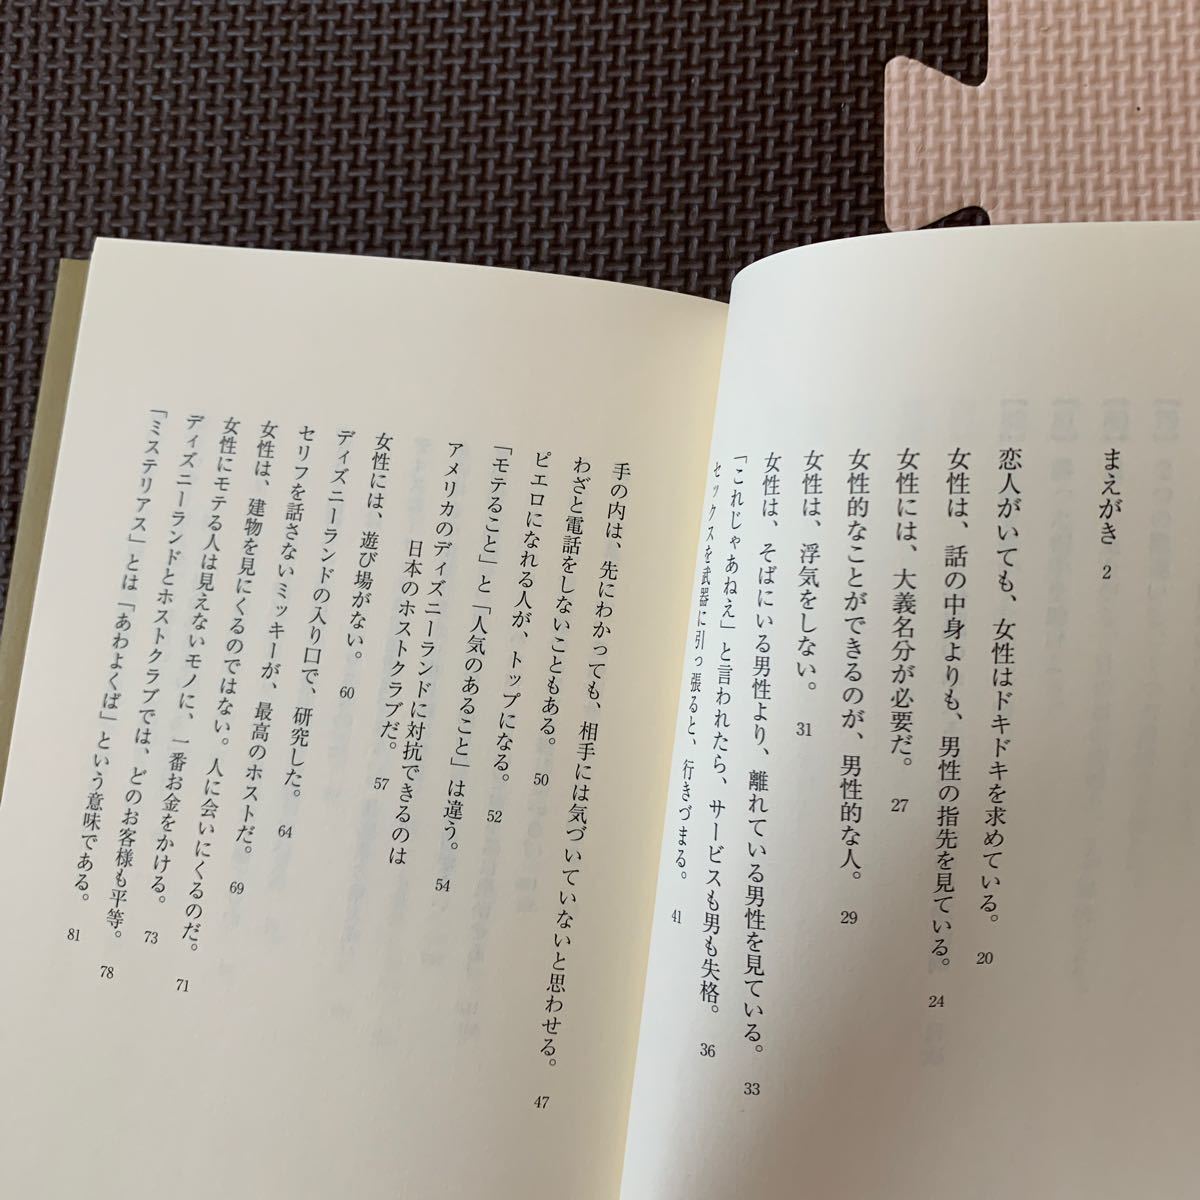 まえがき 2
恋人がいても、女性はドキドキを求めている。 20
女性は、話の中身よりも、男性の指先を見ている。 24
女性には、大義名分が必要だ。 27
女性的なことができるのが、男性的な人。 29
女性は、浮気をしない。 31
女性は、そばにいる男性より、離れている男性を見ている。 33
「これじゃあねえ」と言われたら、サービスも男も失格。 36
セックスを武器に引っ張ると、行きづまる。 41
手の内は、先にわかっても、相手には気づいていないと思わせる。 47
わざと電話をしないこともある。 50
ピエロになれる人が、トップになる。 52
「モテること」と「人気のあること」は違う。 54
アメリカのディズニーランドに対抗できるのは
日本のホストクラブだ。 57
女性には、遊び場がない。 60
ディズニーランドの入り口で、研究した。 64
セリフを話さないミッキーが、最高のホストだ。 69
女性は、建物を見にくるのではない。人に会いにくるのだ。 71
女性にモテる人は見えないモノに、一番お金をかける。 73
ディズニーランドとホストクラブでは、どのお客様も平等。 78
「ミステリアス」とは「あわよくば」という意味である。 81